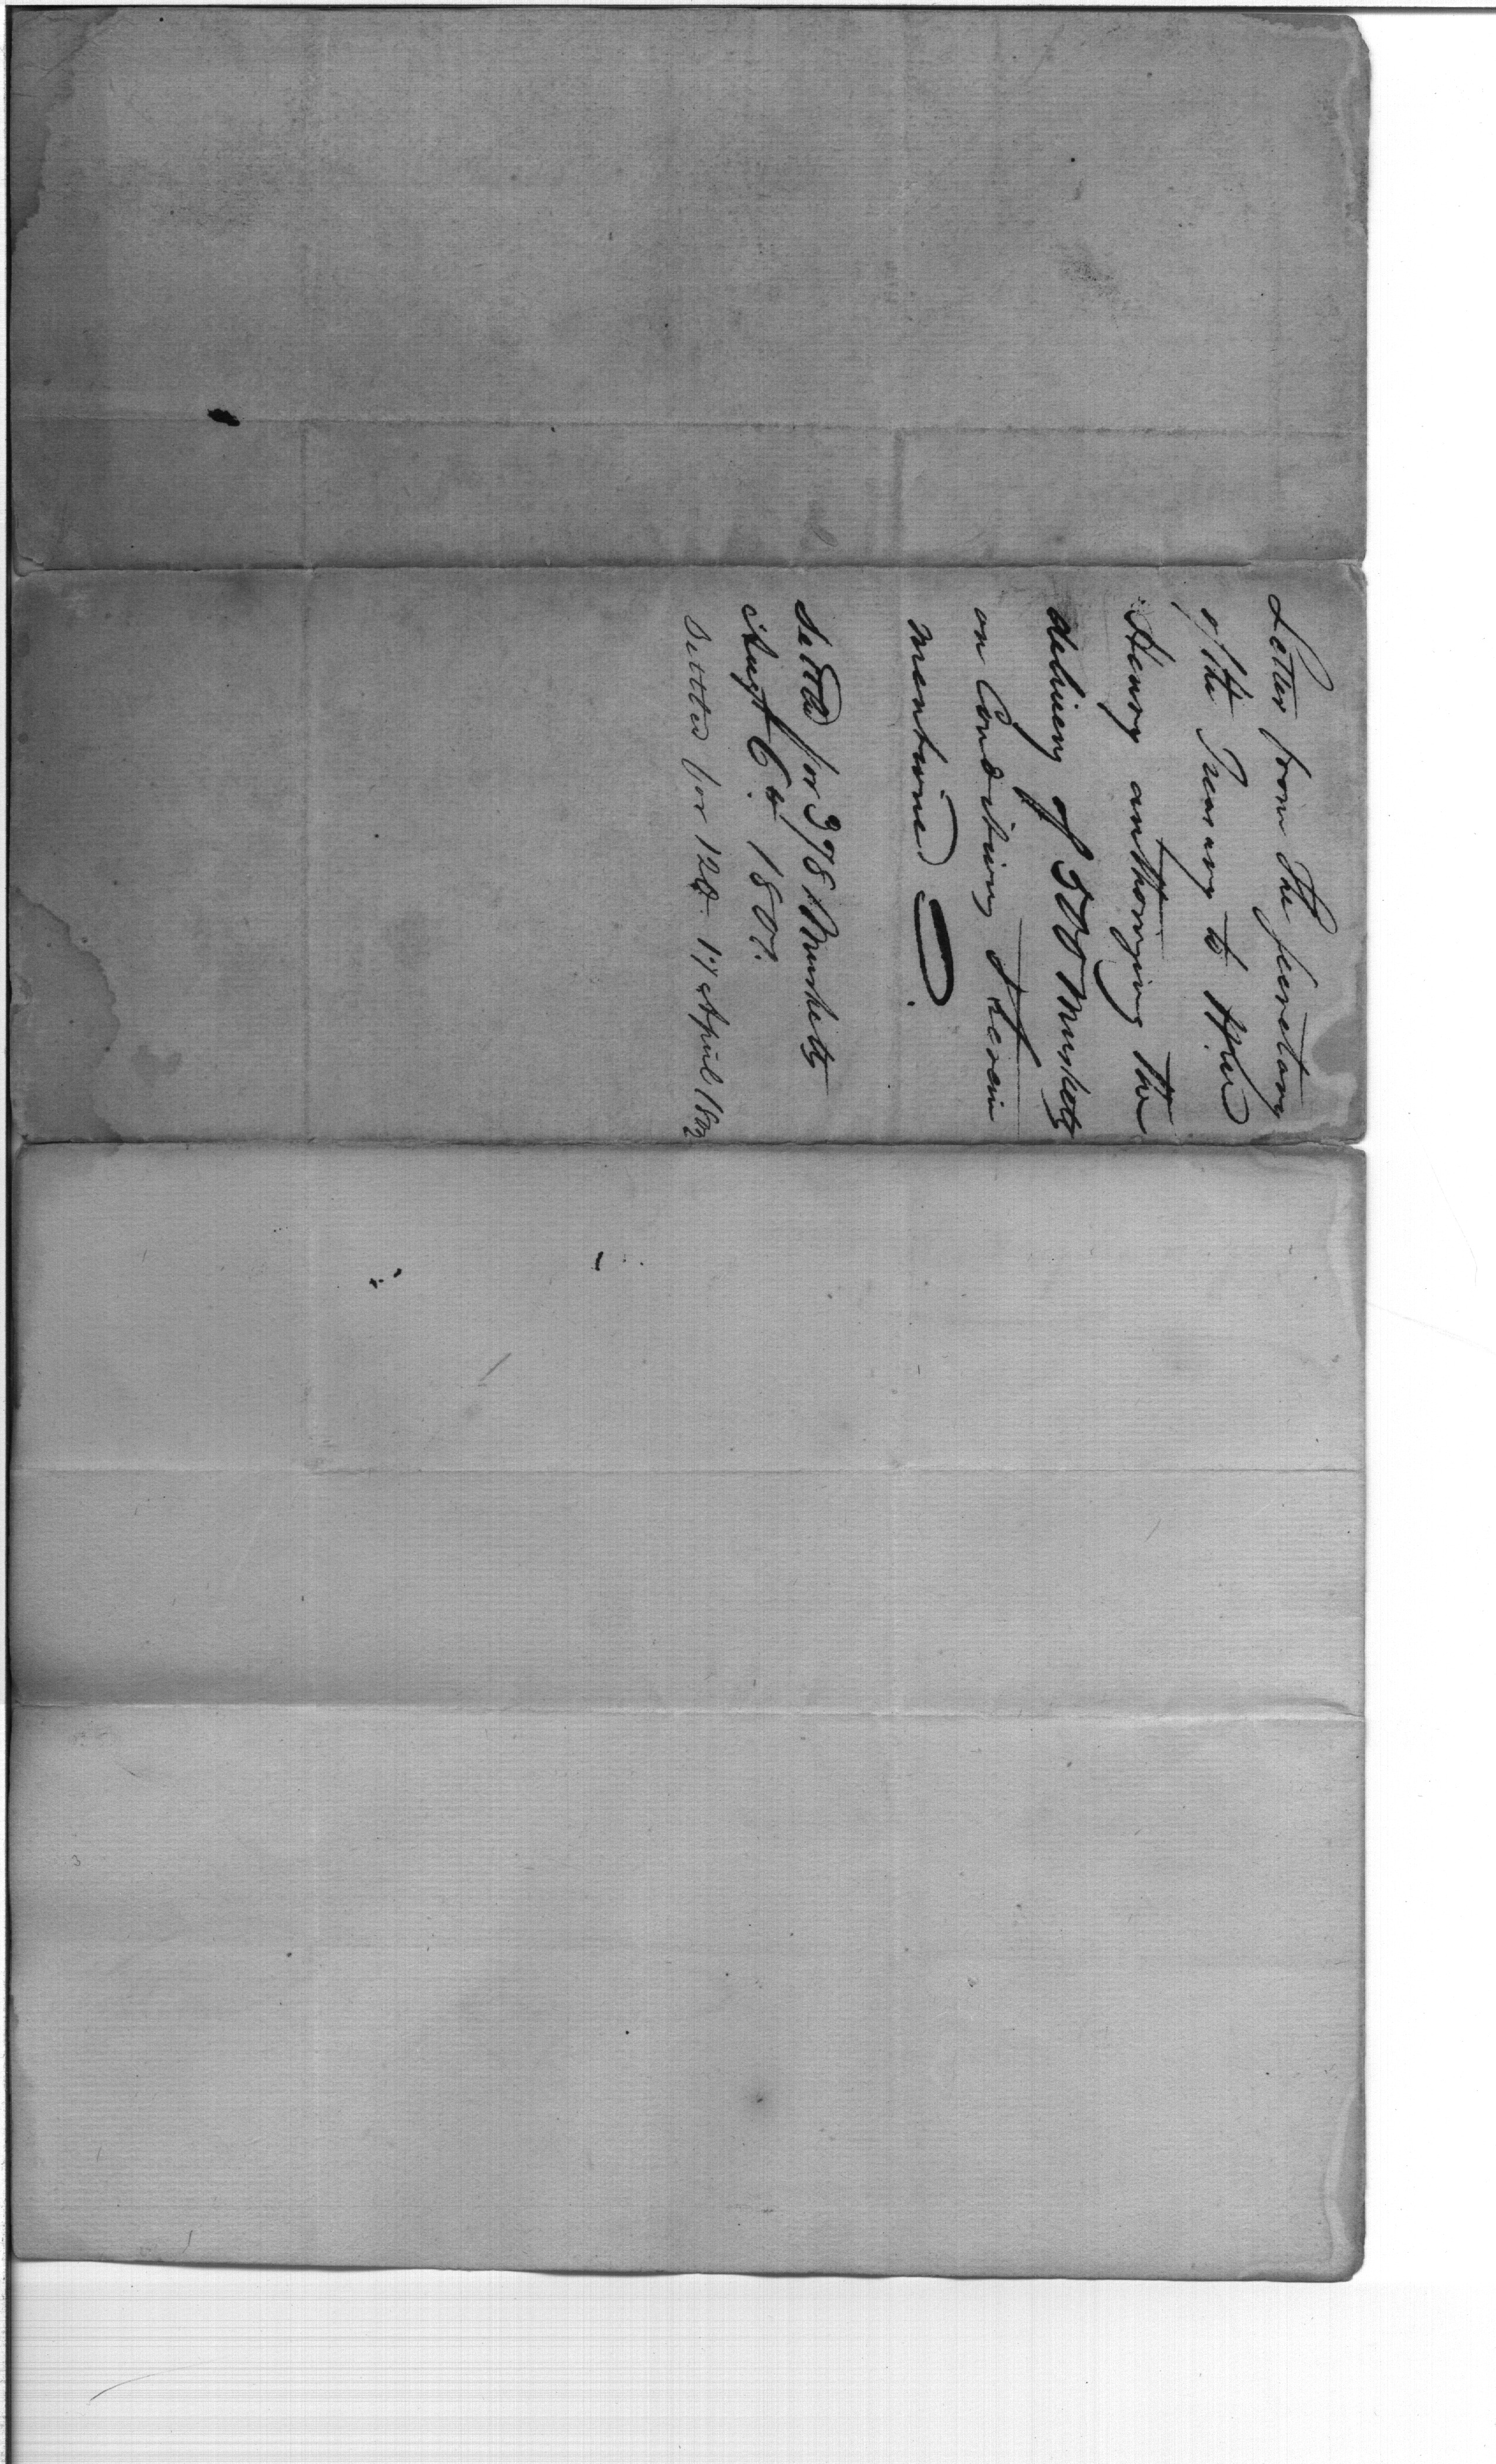 Letter from the Secretary
of the Treasury to
Henry authorizing the
delivery of 500 Muskets
on Conditions therein
mentioned
Settled for 378 Muskets
Augt 6th 1801.
Settled for 122 17 April 1802